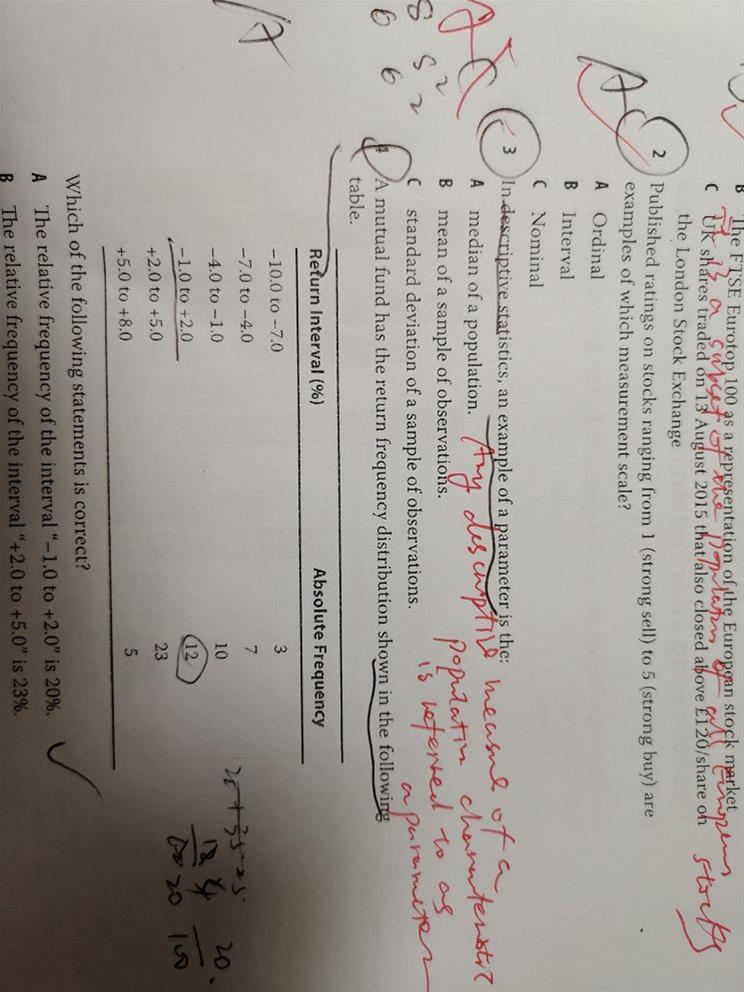 B The FTSE Eurotop 100 as a representation of the European stock market
It is a subset of the population of all European stocks
C UK shares traded on 13 August 2015 that also closed above £120/share on
the London Stock Exchange
2 Published ratings on stocks ranging from 1 (strong sell) to 5 (strong buy) are
examples of which measurement scale?
A Ordinal
B Interval
C Nominal
3 In descriptive statistics, an example of a parameter is the:
A median of a population.
B mean of a sample of observations.
C standard deviation of a sample of observations.
Any descriptive measure of a
population characteristic
is referred to as
a parameter
4 A mutual fund has the return frequency distribution shown in the following
table.
Return Interval (%) Absolute Frequency
−10.0 to −7.0 3
−7.0 to −4.0 7
−4.0 to −1.0 10
−1.0 to +2.0 12
+2.0 to +5.0 23
+5.0 to +8.0 5
20
100
Which of the following statements is correct?
A The relative frequency of the interval "−1.0 to +2.0" is 20%.
B The relative frequency of the interval "+2.0 to +5.0" is 23%.